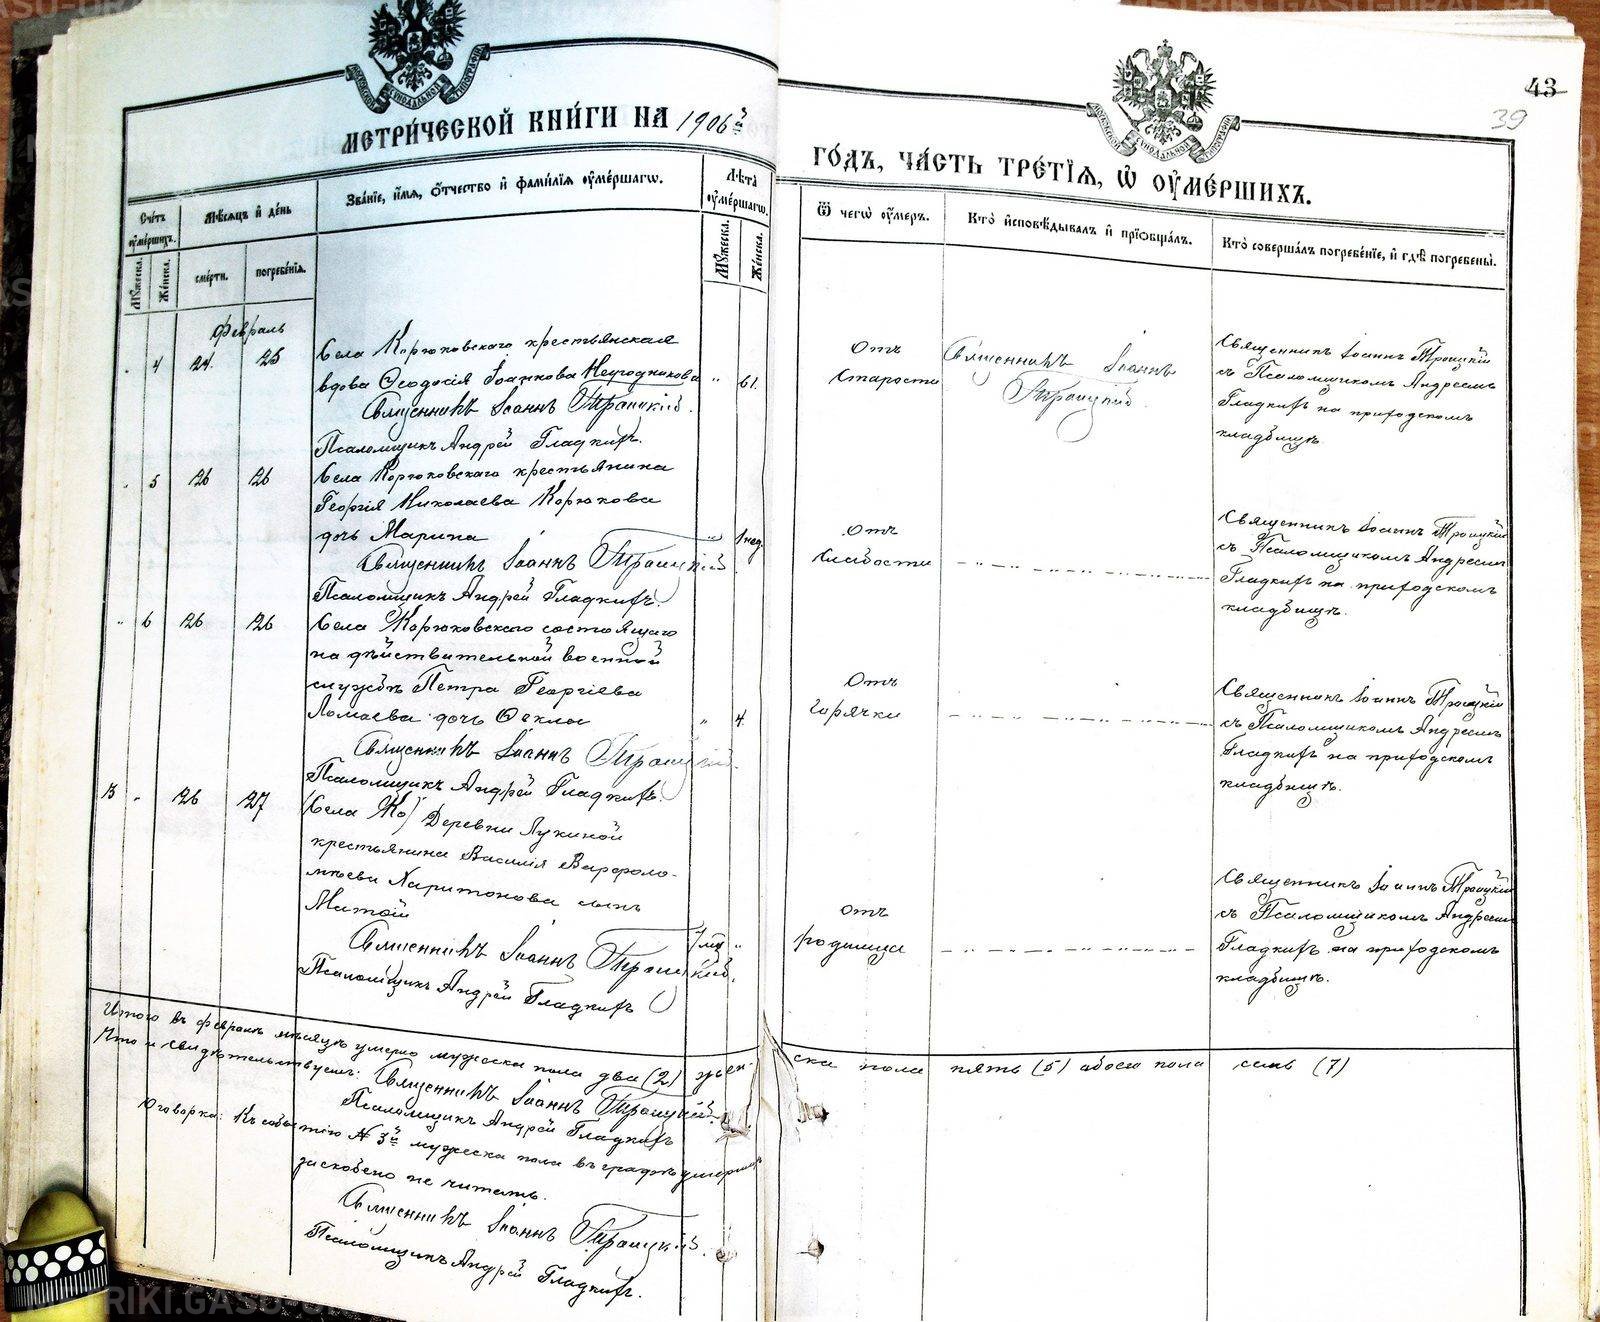 МЕТРИ́ЧЕСКОЙ КНИ́ГИ НА 1906й
ГО́ДЪ, ЧА́СТЬ ТРЕ́ТІѦ, Ѽ ОУ҆МЕ́РШИХЪ.
43
39
Сче́тъ оу҆ме́ршихъ.
Мѣ́сѧцъ и҆ де́нь
Зва́нїе, и҆́мѧ, ѻ҆́тчество и҆ фамилїѧ оу҆ме́ршагѡ.
Лѣта̀ оу҆ме́ршагѡ.
Му́жеска.
Же́нска.
сме́рти.
погребе́нїѧ.
Му́жеска.
Же́нска.
Ѿ чегѡ̀ оу҆́меръ.
Кто̀ и҆сповѣ́дывалъ и҆ прїѡбща́лъ.
Кто̀ соверша́лъ погребе́нїе, и҆ гдѣ̀ погребены̀.
Февраль
4 24. 25 Села Корюковскаго крестьянская
вдова Ѳеодосія Іоаннова Негодникова " 61.
Священникъ Іоаннъ Троицкій.
Псаломщикъ Андрей Гладкихъ.
Отъ
старости
Священникъ Іоаннъ
Троицкій.
Священникъ Іоаннъ Троицкій
съ Псаломщикомъ Андреемъ
Гладкихъ на приходскомъ
кладбищѣ
5 26 26 Села Корюковскаго крестьянина
Георгія Николаева Корюкова
дочь Марина " 1 нед.
Священникъ Іоаннъ Троицкій
Псаломщикъ Андрей Гладкихъ.
Отъ
слабости
Священникъ Іоаннъ Троицкій
съ Псаломщикомъ Андреемъ
Гладкихъ на приходскомъ
кладбищѣ.
" 6 26 26 Села Корюковскаго состоящаго
на дѣйствительной военной
службѣ Петра Георгіева
Ломаева дочь Ѳекла " 4.
Священникъ Іоаннъ Троицкій.
Псаломщикъ Андрей Гладкихъ.
Отъ
горячки
Священникъ Іоаннъ Троицкій
съ Псаломщикомъ Андреемъ
Гладкихъ на приходскомъ
кладбищѣ.
3 " 26 27 (Села Ко) Деревни Лукиной
крестьянина Василія Варфоло-
мѣева Харитонова сынъ
Матѳій "
Священникъ Іоаннъ Троицкій.
Псаломщикъ Андрей Гладкихъ
отъ
родимца
Священникъ Іоаннъ Троицкій
съ Псаломщикомъ Андреемъ
Гладкихъ на приходскомъ
кладбищѣ.
Итого въ февралѣ мѣсяцѣ умерло мужеска пола два (2) жен-
ска пола пять (5) обоего пола семь (7)
Что и свидѣтельствуемъ: Священникъ Іоаннъ Троицкій.
Псаломщикъ Андрей Гладкихъ
Оговорка: Къ событію № 3й мужеска пола въ графѣ умершихъ
заскоблено не читать.
Священникъ Іоаннъ Троицкій.
Псаломщикъ Андрей Гладкихъ.
METRIKI.GASU-URAL.RU